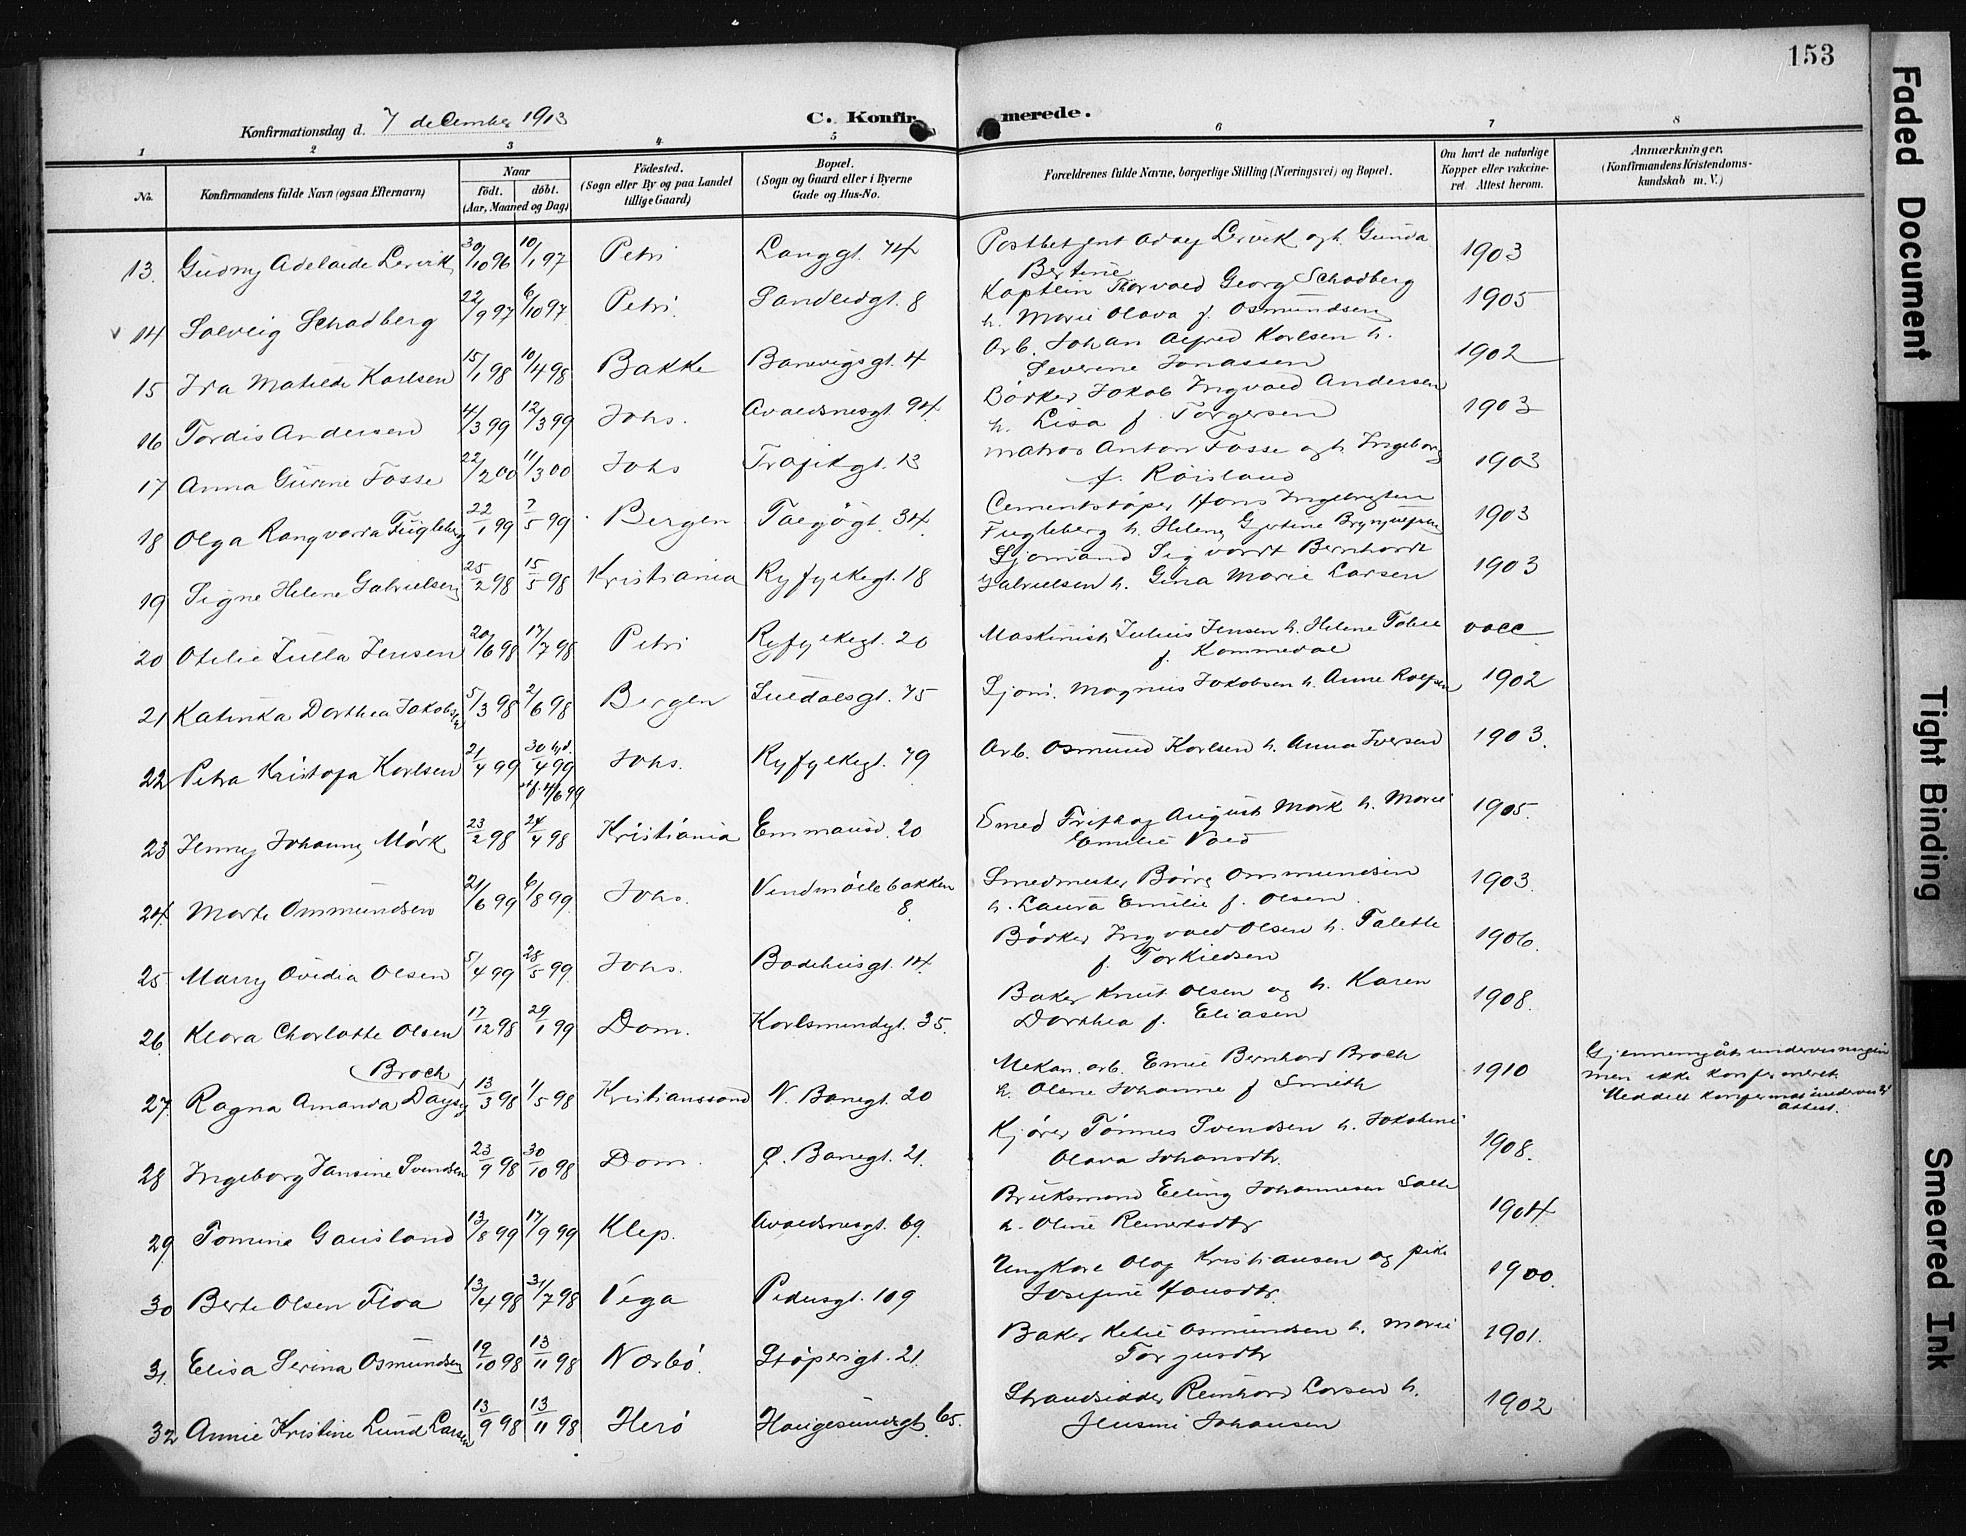 153
Faded Document
Tight Binding
Smeared Ink
Konfirmationsdag d. 7 december 1913
C. Konfirmerede.
1 2 3 4 5 6 7 8
No.
Konfirmandens fulde Navn (ogsaa Efternavn)
Naar
født. døbt.
(Aar, Maaned og Dag)
Fødested.
(Sogn eller By og paa Landet
tillige Gaard)
Bopæl.
(Sogn og Gaard eller i Byerne
Gade og Hus-No.
Forældrenes fulde Navne, borgerlige Stilling (Næringsvei) og Bopæl.
Om havt de naturlige
Kopper eller vakcine-
ret. Attest herom.
Anmærkninger.
(Konfirmandens Kristendoms-
kundskab m. V.)
13. Gudny Adelaide Lervik 30/10 96 10/1 97 Petri Langgt. 74 Lervik og h. Gunda
Bertine 1903
14 Solveig Schadberg 22/9 97 6/10 97 Petri Sandeidgt. 8 Kaptein Thorvald Georg Schadberg
h. Marie Olava f. Osmundsen 1905
15 Ida Matilde Karlsen 15/1 98 10/4 98 Bakke Banevigsgt. 4 Arb. Johan Alfred Karlsen h.
Severine Jonassen 1902
16 Tordis Andersen 4/3 99 12/3 99 Johs. Avaldsnesgt. 94 Bødker Jakob Ingvald Andersen
h. Lisa f. Torgersen 1903
17 Anna Gurine Fosse 22/2 00 11/3 00 Johs Trafikgt. 13 Matros Anton Fosse og h. Ingeborg
f. Røisland 1903
18 Olga Rangvarda Fugleberg 22/1 99 7/5 99 Bergen Talgøgt. 34 Cementstøper Hans Ingebrigtsen
Fugleberg h. Helene Gjertine 1903
19 Signe Helene Gabrielsen 25/2 98 15/5 98 Kristiania Ryfylkegt. 18 Sjømand Sigvardt Bernhardt
Gabrielsen h. Gina Marie Larsen 1903
20 Otilie Julla Jensen 20/6 98 17/7 98 Petri Ryfylkegt. 20 Maskinist Julius Jensen h. Helene
f. Kommedal
21 Katinka Dorthea Jakobsen 5/3 98 2/6 98 Bergen Suldalsgt. 75 Sjøm. Magnus Jakobsen h. Anne 1902
22 Petra Kristofa Karlsen 21/4 99 30/4 99 Johs. Ryfylkegt. 79 Arb. Osmund Karlsen h. Anna Iversen 1903.
23 Jenny Johanne Mørk 23/2 98 24/4 98 Kristiania Emmausv. 20 Smed August Mørk h. Marie
Emilie Vold 1905.
24 Marte Ommundsen 21/6 99 6/8 99 Johs. Vindmøllebakken
8. Smedmester Børre Ommundsen
h. Laura Emilie f. Olsen. 1903.
25 Marry Ovidia Olsen 5/4 99 28/5 99 Johs. Badehusgt. 14. Bødker Ingvald Olsen h. Talette
f. Torkildsen 1906.
26 Klara Charlotte Olsen 17/12 98 29/1 99 Dom. Karlsmindegt. 35. Baker Knut Olsen og h. Karen
Dorthea f. Eliasen 1908.
27 Ragna Amanda Daysy Broch 13/3 98 1/5 98 Kristianssand N. Banegt. 20 Mekan. arb. Emil Bernhard Broch
h. Olene Johanne f Smith 1910 Gjennemgåt undervisningen
men ikke konfirmeret.
28 Ingeborg Jansine Svendsen 23/9 98 30/10 98 Dom. Ø. Banegt. 21. Kjører Tønnes Svendsen h. Jakobine
Olava Johansdtr. 1908.
29 Tomine Gausland 13/8 99 17/9 99 Klep. Avaldsnesgt. 69. Bruksmand Elling Johannesen
h. Oline Reinertsdtr 1904
30 Berte Olsen Floa 13/4 98 31/7 98 Vega Pedersgt. 109 Ungkarl Olaf Kristiansen og pike
Josefine Hansdtr. 1900.
31. Elisa Serina Osmundsen 19/10 98 13/11 98 Nærbø Støperigt. 21. Baker Ketil Osmundsen h. Marie
Torjusdtr 1901.
32 Annie Kristine Lund Larsen 13/9 98 13/11 98 Herø Haugesundsgt. 65. Strandsidder Reinhard Larsen h.
Johansen 1902